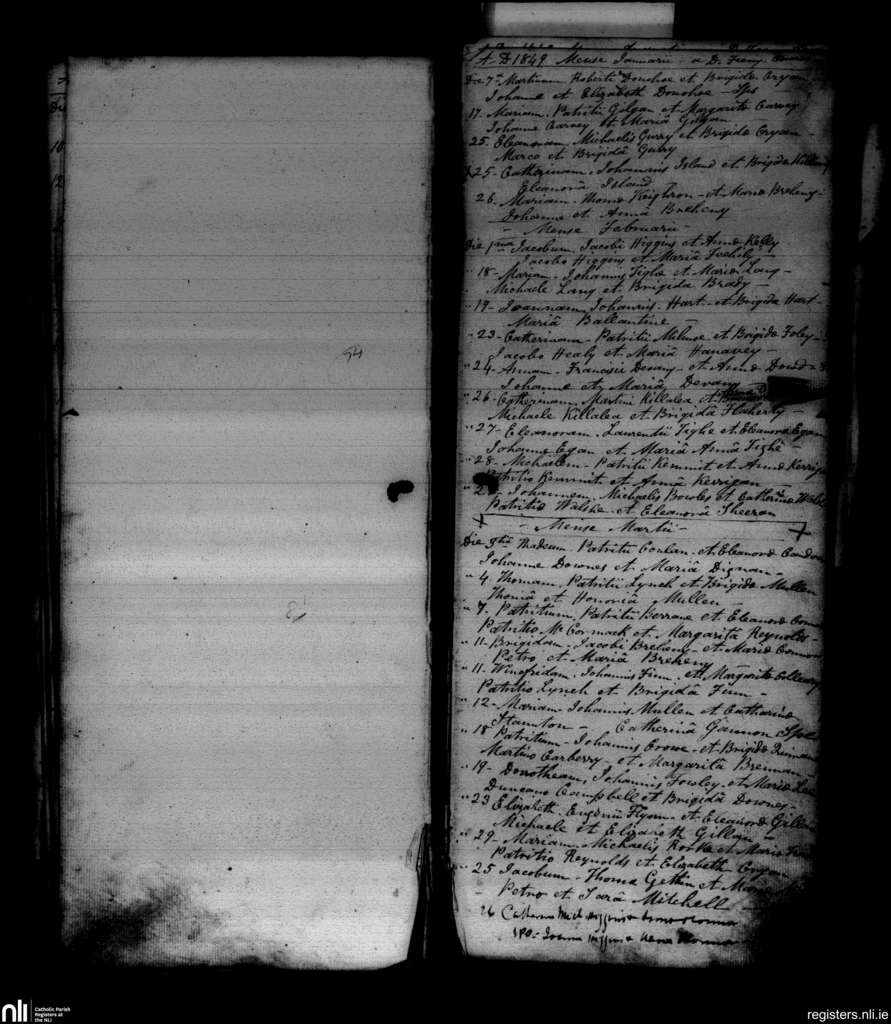 94
A.D 1849 Mense Januarii - a D. Feeny
Die 7a Martinum Roberti Donohoe et Brigida Cryan
Johanne et Elizabeth Donohoe - Sps
17. Mariam. Patritii Gilgan et Margarita Garvey
Johanne Garvey et Mariâ Gilgan
25. Eleanoram. Michaelis Gurry et Brigida Cryan -
Marco et Brigidâ Gurry
X 25 - Catherinam. Johannis Island et Brigida
Eleanorâ Island
26. Mariam. Thoma Keighron - et Maria Breheny -
Johanne et Annâ Breheny
- Mense Februarii -
Die 1ma Jacobum. Jacobi Higgins et Anna Kelly
Jacobo Higgins et Mariâ Feehily
" 18 - Mariam. Johannis Tighe et Maria Lang -
Michaele Lang et Brigida Brady -
" 19 - Joannam. Johannis. Hart. et Brigida Hart -
Mariâ Ballantine -
" 23 - Catherinam - Patritii Milmoe et Brigida Foley -
Jacobo Healy et Mariâ Hanavey -
" 24. Annam. Francisci Devany - et Anna Dowd -
Johanne et Mariâ Devany
" 26 - Catherinam. Martini Killalea et
Michaele Killalea et Brigidâ Flaherty -
" 27 - Eleanoram. Laurentii Tighe et Eleanora Egan
Johanne Egan et Mariâ Annâ Tighe
" 28 - Michaelem - Patritii Kemmit et Anna Kerrigan
Patritio Kemmit et Annâ Kerrigan -
" Johannem. Michaelis Bowles et Catherina Walsh
Patritio Walshe - et Eleanorâ Sheeran
X - Mense Martii - X
Die 3tia Thadeum. Patritii Conlan - et Eleanora
Johanne Downes et Mariâ Dignan -
" 4. Thomam. Patritii Lynch et Brigida Mullen
Thomâ et Honoriâ Mullen
" 7. Patritium. Patritii Berrane et Eleanora
Patritio McCormack et Margaritâ Reynolds -
" 11 - Brigidam. Jacobi Breheny - et Maria Connor
Petro et Mariâ Breheny
" 11. Winefridam. Johannis Finn. et Margarita
Patritio Lynch et Brigidâ Finn -
" 12. Mariam. Johannis Mullen et Catharina
Staunton - Catherinâ Gannon Sps
" 18 Patritium - Johannis Crowe - et Brigida
Martino Carberry - et Margaritâ Brennan
" 19 - Dorotheam. Johannis Towley. et Maria
Duncano Campbell et Brigidâ Downes -
" 23 Elizabeth. Eugenii Flynn - et Eleanora
Michaele et Elizabeth Gillan -
" 29 - Mariam. Michaelis Rorke et Maria
Patritio Reynolds et Elizabeth Cryan
" 25 Jacobum - Thoma Gethin et
- Petro et Sarâ Mitchell
26 Michl Higgins
Sps - Higgins
nli
Catholic Parish
Registers at
the NLI
registers.nli.ie